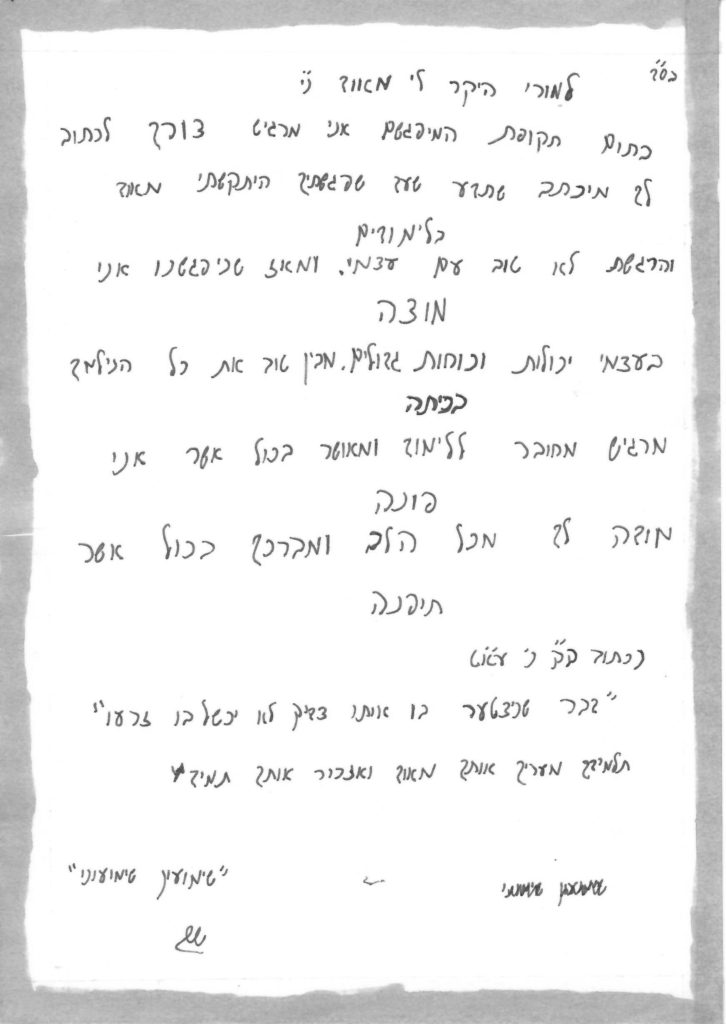 בס"ד
למורי היקר לי מאוד נ"י
בתום תקופת המיפגשים אני מרגיש צורך לכתוב
לך מיכתב שתדע שעד שפגשתיך היתקשתי מאוד
בלימודים
והרגשתי לא טוב עם עצמי. ומאז שניפגשנו אני
מוצה
בעצמי יכולות וכוחות גדולים. מבין טוב את כל הנילמד
בכיתה
מרגיש מחובר ללימוד ומאושר בכול אשר אני
פונה
מודה לך מכל הלב ומברכך בכול אשר
תיפנה
נכתוב
"דבר שניצטער בו אותו צדיק לא יכשל בו זרעו"
תלמידך מעריך אותך מאוד ואזכור אותך תמיד
"שימועון שימעוני"